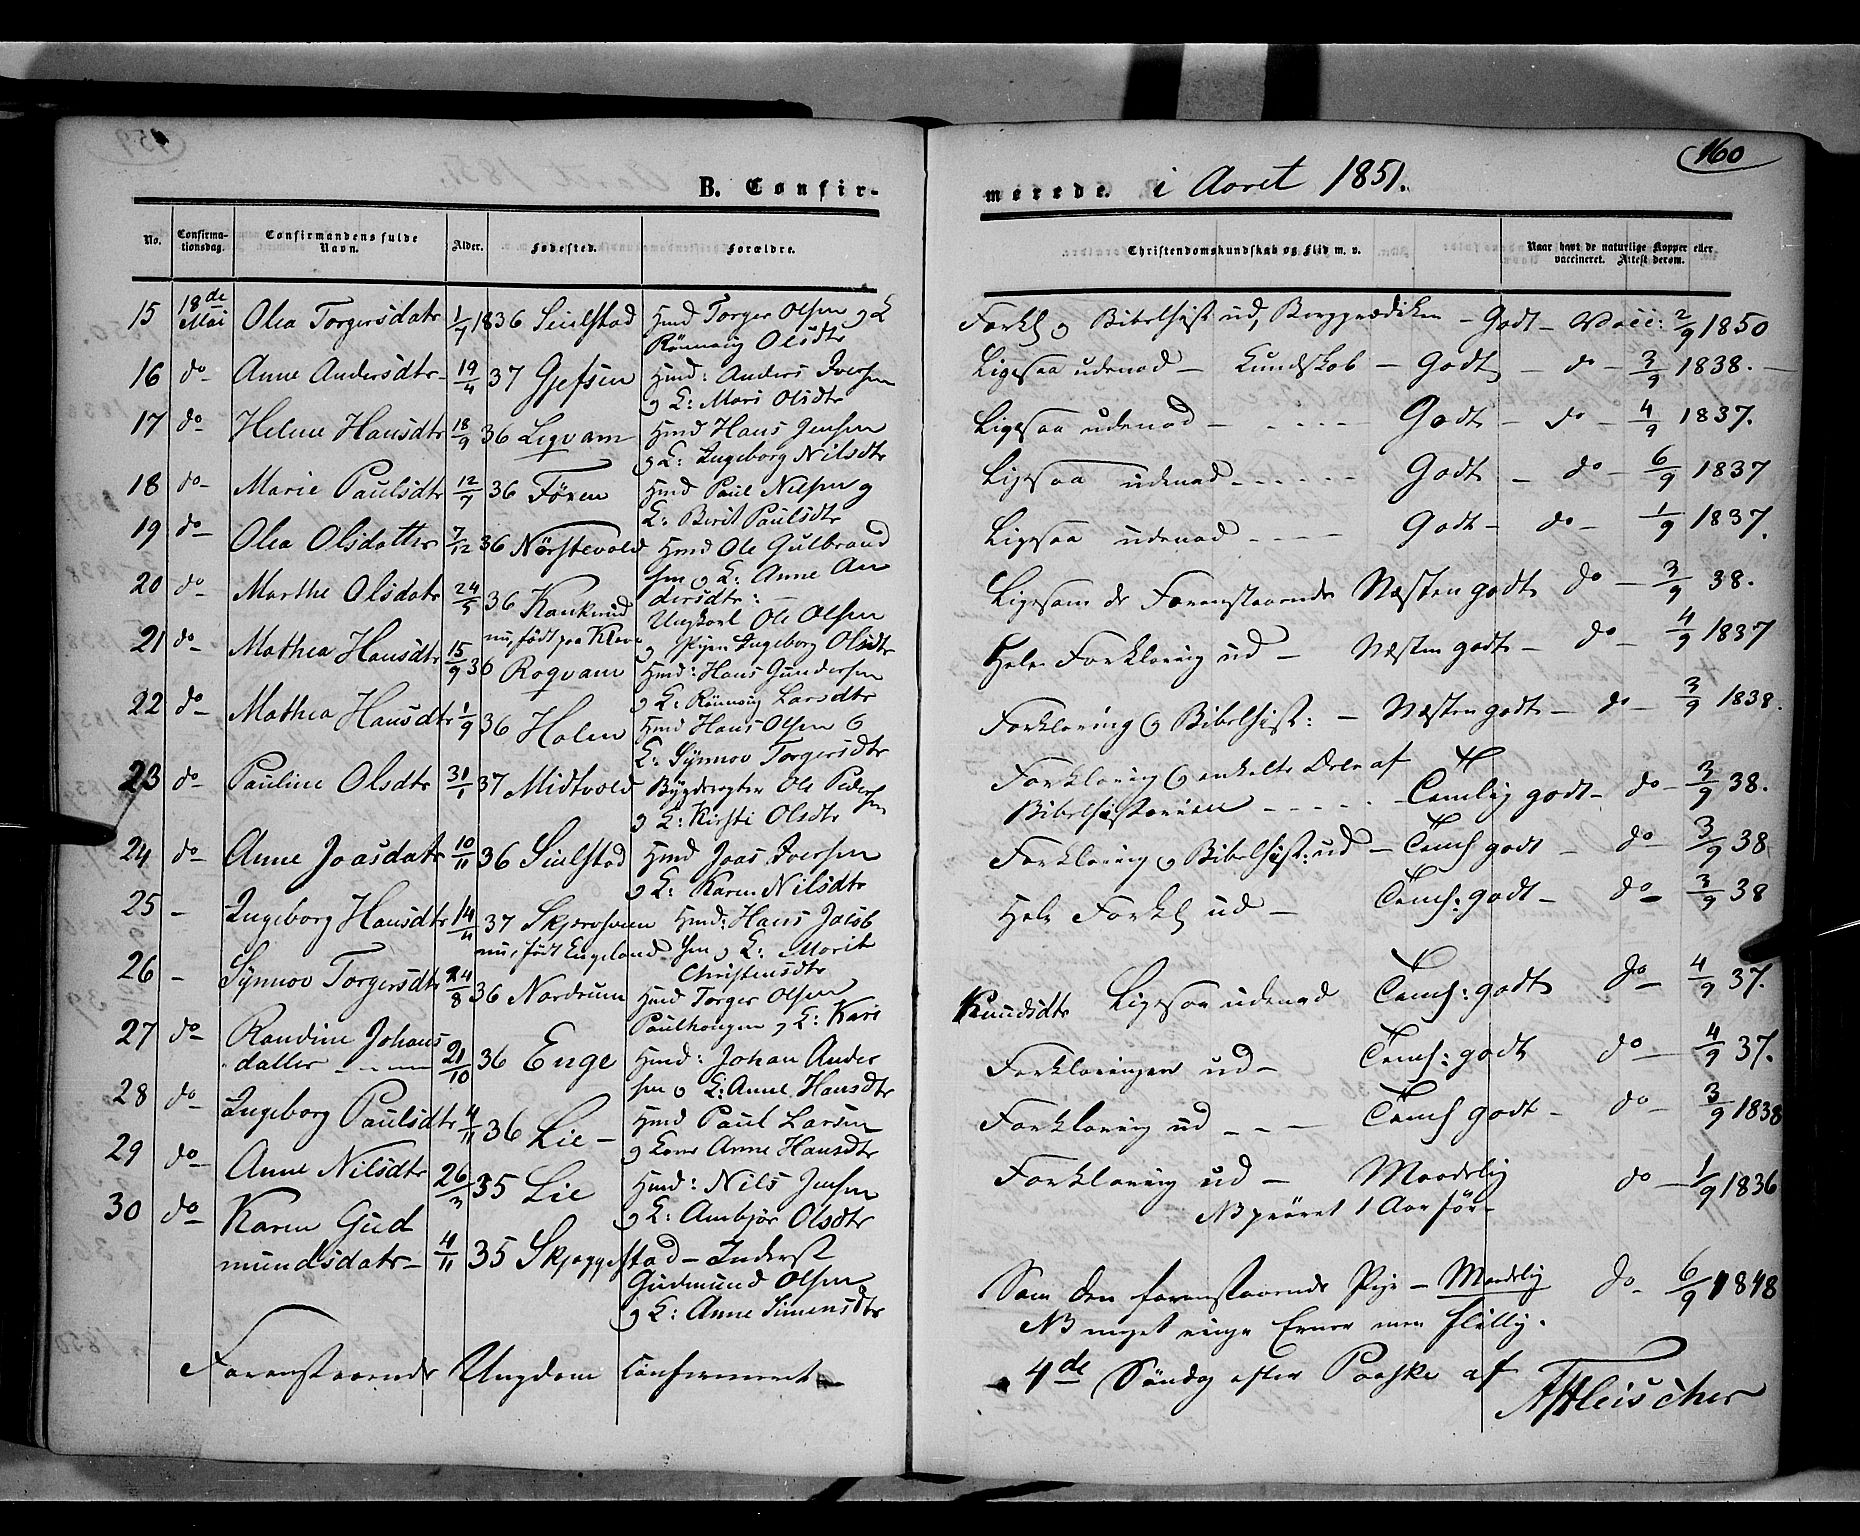 160
B. Confir-
merede. i Aaret 1851.
No. Confirma-tionsdag. Confirmandens fulde Navn. Alder. Fødested. Forældre.
Christendomskundskab og Flid m. v. Naar havt de naturlige Kopper eller vaccineret. Attest derom.
15 18de Mai Olea Torgersdatr 1/7 1836 Sulstad Hmd Torger Olsen og K
Rönnaug Olsdtr
16 do Anne Andersdtr 19/4 37 Gjefsen Hmd: Anders Iversen
og K: Mari Olsdtr
17 do Helene Hansdtr 18/9 36 Legvam Hmd Hans Jensen
og K: Ingeborg Nilsdtr
18 do Marie Paulsdtr 12/7 36 Fören Hmd Paul Nilsen og
K: Berit Paulsdtr
19 do Olea Olsdatter 7/12 36 Nörstevold Hmd Ole Gulbrand
sen og K: Anne An
dersdtr:
20 do Marthe Olsdatr 24/5 36 Kankrud Ungkarl Ole Olsen
nu, født paa og Pigen Ingeborg Olsdtr
21 do Mathea Hansdtr 15/9 36 Roqvam Hmd: Hans Gundersen
og K: Rönnaug Larsdtr
22 do Mathea Hansdtr 1/9 36 Holen Hmd Hans Olsen og
K: Synnov Torgersdtr
23 do Pauline Olsdtr 31/1 37 Midtvold Ole Pedersen
og K: Kirsti Olsdtr
24 do Anne Joasdatr 10/11 36 Sulstad Hmd Joas Iversen
og K: Karen Nilsdtr
25 - Ingeborg Hansdtr 14/4 37 Hmd: Hans Jacob
nu, født Engeland sen og K: Marit
Christensdtr
26 - Synnov Torgersdtr 24/8 36 Nordrum Hmd Torger Olsen
Paulhaugen og K: Kari
27 do Randine Johans
datter 21/10 36 Enge Hmd: Johan Ander
sen og K: Anne Hansdtr
28 do Ingeborg Paulsdtr 4/11 36 Lie Hmd Paul Larsen
og Kone Anne Hansdtr
29 do Anne Nilsdtr 26/3 35 Lie Hmd: Nils Jensen
og K: Ambjör Olsdtr
30 do Karen Gud
mundsdatr 4/11 35 Skjeggestad Inderst
Gudmund Olsen
og K: Anne Simensdtr
Foranstaaende Ungdom Confirmeret
Forkl og Bibelhist ud, Bergprædiken - Godt - Vacc: 2/9 1850
Ligesaa udenad - Kundskab - Godt - do - 3/9 1838.
Ligesaa udenad - Godt - do - 4/9 1837.
Ligesaa udenad - Godt - do - 6/9 1837
Ligesaa udenad - Godt - do - 1/9 1837.
Ligesom de Foranstaaende Næsten godt do - 3/9 38.
Hele Forklaring ud - Næsten godt - do - 4/9 1837
Forklaring og Bibelhist: - Næsten godt - do - 3/9 1838.
Forklaring og enkelte Dele af
Bibelhistorien - Temlig godt - do - 3/9 38.
Forklaring og Bibelhist: ud - Teml godt - do - 3/9 38
Hele Forkl ud - Teml: godt - do - 3/9 38
Knudsdtr Ligesaa udenad Teml: godt do - 4/9 37.
Forklaringen ud - Teml: godt do - 4/9 37.
Forklaring ud - Teml godt - do - 3/9 1838
Forklaring ud - Maadelig do - 1/9 1836
NB prövet 1 Aar før
Som den foranstaaende Pige - Maadelig do - 6/9 1848
NB meget ringe Evner men flittig.
4de Söndag efter Paaske af
Fleischer